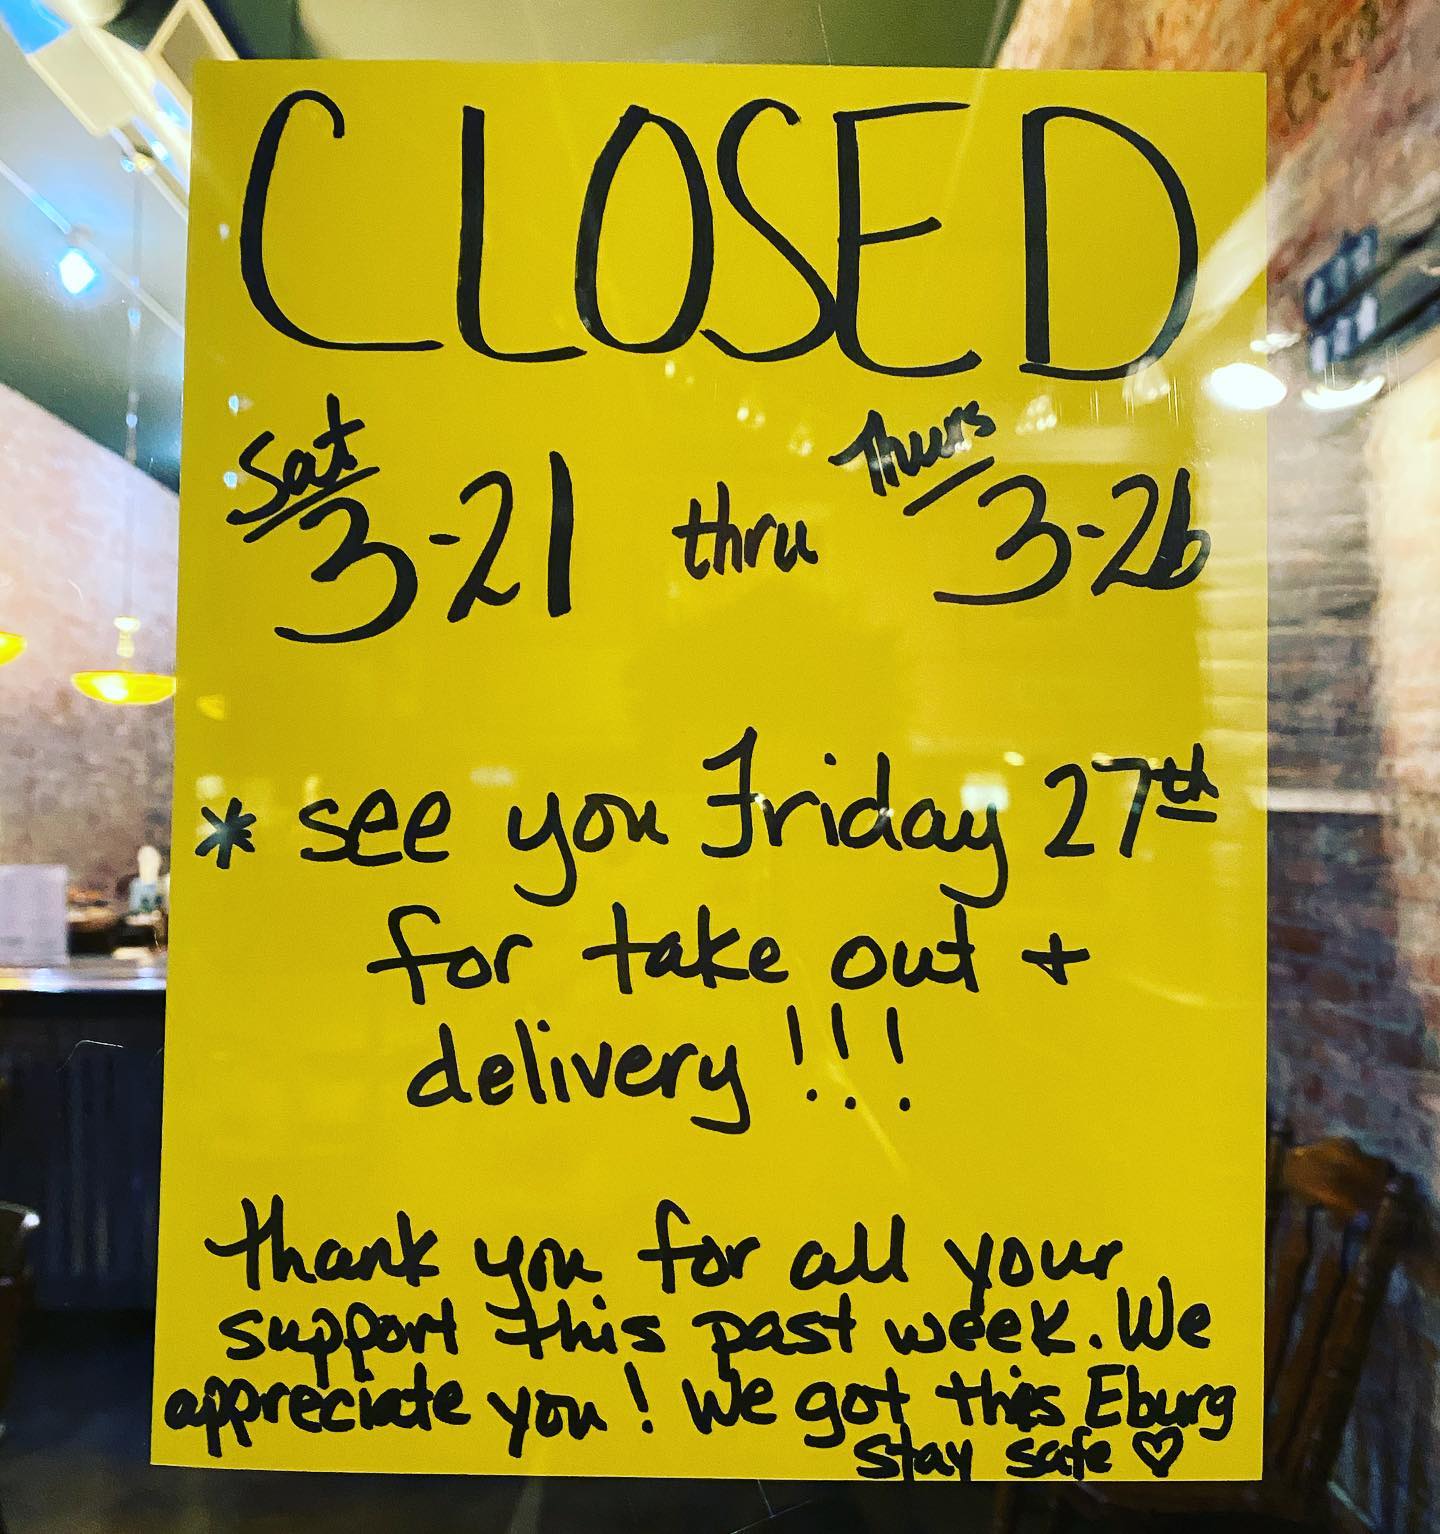 CLOSED
Sat Thurs
3-21 thru 3-26
* see you Friday 27th
for take out +
delivery!!!
thank you for all your
support this past week. We
appreciate you! We got this Eburg
stay safe ♡